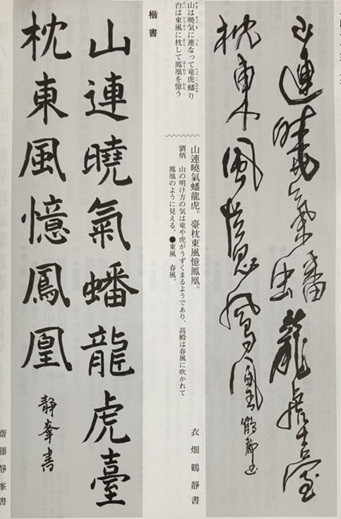 山連曉氣蟠龍虎臺
枕東風憶鳳凰 鶴靜書
衣畑鶴静書
山連曉氣蟠龍虎。臺枕東風憶鳳凰。
劉炳 山の明け方の気は竜や虎がうずくまるようであり、高殿は春風に吹かれて
鳳凰のように見える。●東風 春風。
山は暁気に連なって竜虎蟠り
台は東風に枕して鳳凰を憶う
楷書
山連曉氣蟠龍虎臺
枕東風憶鳳凰 靜峯書
齋藤靜峯書